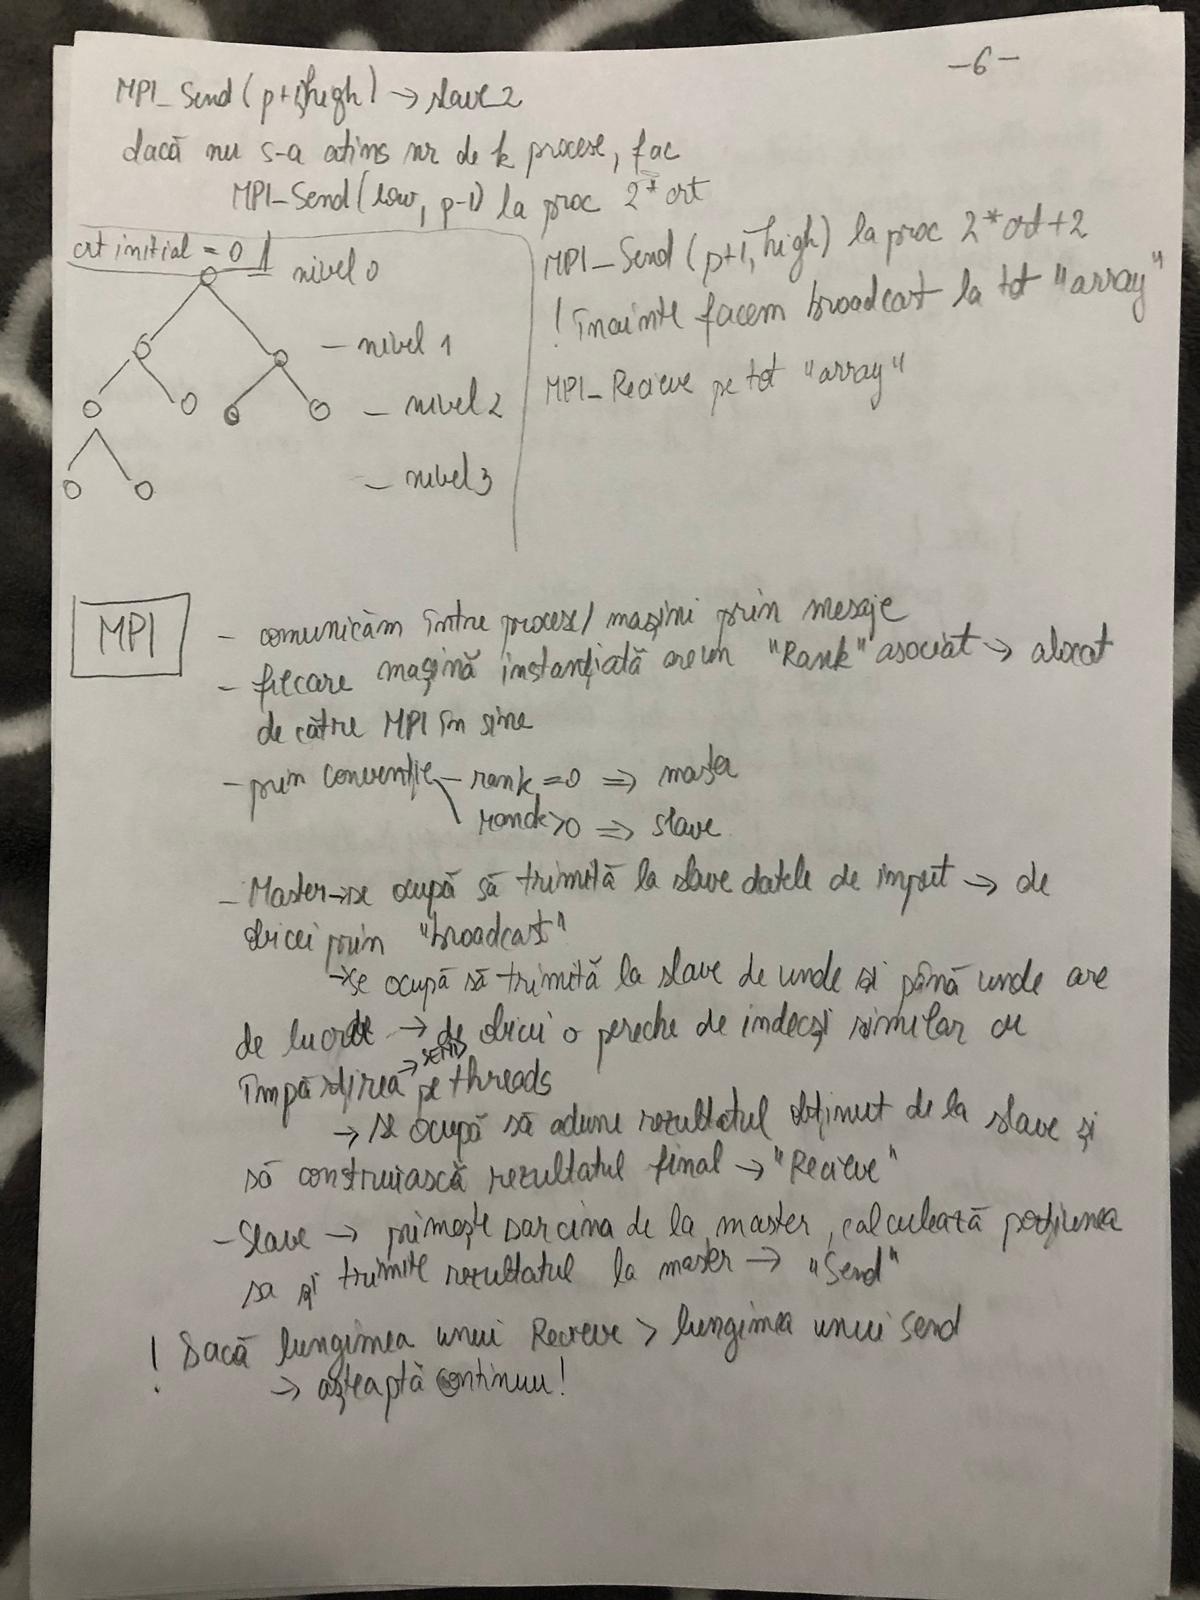 -6-
MPI_Send(p+1,high) → slave 2
dacă nu s-a atins nr de k procese, fac
MPI_Send(low, p-1) la proc 2*crt
MPI_Send(p+1, high) la proc 2*crt+2
! înainte facem broadcast la tot "array"
MPI_Recieve pe tot "array"
crt initial = 0
nivel 0
- nivel 1
- nivel 2
- nivel 3
MPI
- comunicăm între procese/ mașini prin mesaje
- fiecare mașină instanțiată are un "Rank" asociat → alocat
de către MPI în sine
- prin convenție - rank=0 ⇒ master
rank>0 ⇒ slave
- Master → se ocupă să trimită la slave datele de input → de
obicei prin "broadcast"
→ se ocupă să trimită la slave de unde și până unde are
de lucrat → de obicei o pereche de indecși similar cu
împărțirea pe threads → SEND
→ se ocupă să adune rezultatul obținut de la slave și
să construiască rezultatul final → "Recieve"
- Slave → primește sarcina de la master, calculează porțiunea
sa și trimite rezultatul la master → "Send"
! Dacă lungimea unui Recieve > lungimea unui send
→ așteaptă continuu!